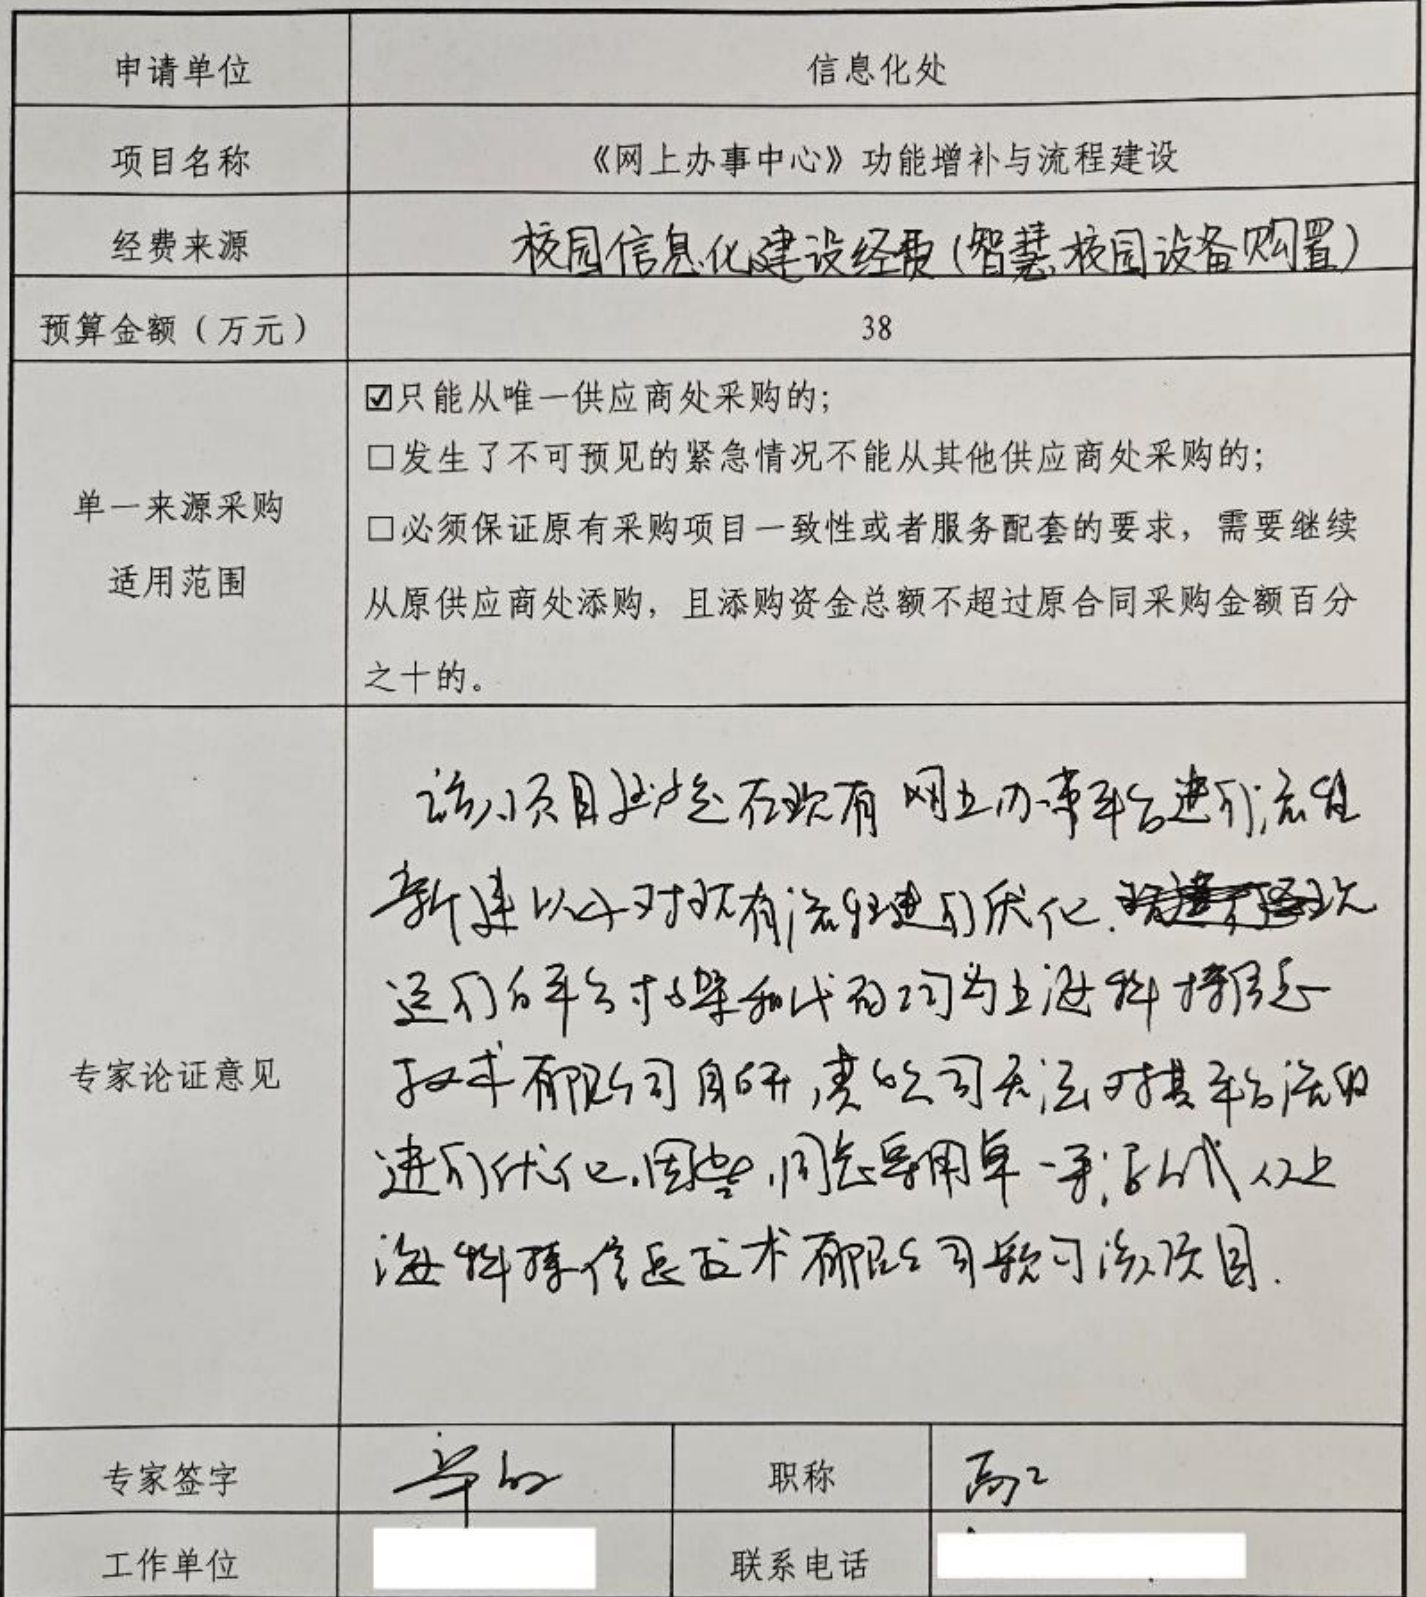 申请单位 信息化处
项目名称 《网上办事中心》功能增补与流程建设
经费来源 校园信息化建设经费(智慧校园设备购置)
预算金额（万元） 38
单一来源采购
适用范围
☑只能从唯一供应商处采购的；
□发生了不可预见的紧急情况不能从其他供应商处采购的；
□必须保证原有采购项目一致性或者服务配套的要求，需要继续
从原供应商处添购，且添购资金总额不超过原合同采购金额百分
之十的。
专家论证意见
该项目是在现有网上办事平台进行流程
新建以及对现有流程进行优化.现
运行的平台框架和代码均为上海 信息
技术有限公司自研,其他公司无法对其平台流程
进行优化.因此,同意采用单一来源方式从上
海 信息技术有限公司采购该项目.
专家签字 职称 高工
工作单位 联系电话